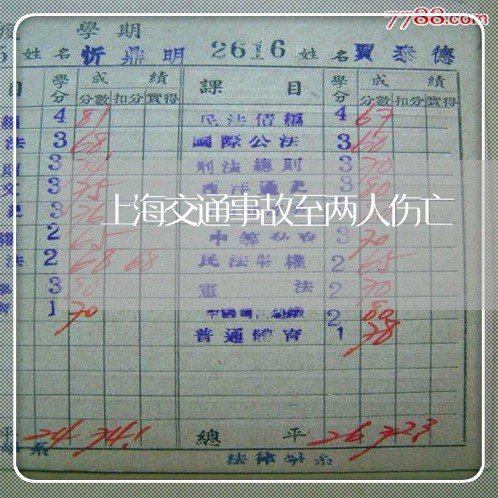 7788.com
學期
姓名 忻鼎明 2616 姓名 賈泰德
目 學分 成績 課目 學分 成績
分數 扣分 實得 分數 扣分 實得
4 81 民法債編 4 67
法 3 68 國際公法 3 60
3 刑法總則 3 70
3 75 西洋通史 3 80
3 76
上海交通事故至两人伤亡
2 65 3 70
法 2 68 68 民法物權 2 65
3 80 憲法 2 70
1 70 2 80
普通體育 1 78
平 24 74.1 總平 26 72.3
系 法律學系